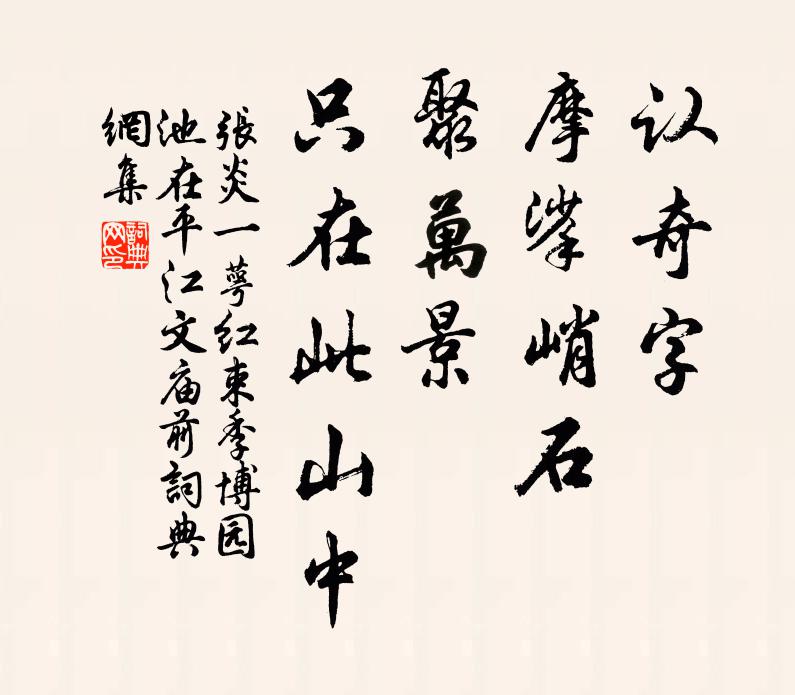 认奇字
摩挲峭石
聚萬景
只在此山中
張炎一萼红束季博园
池在平江文庙前詞典
網集
詞典网印